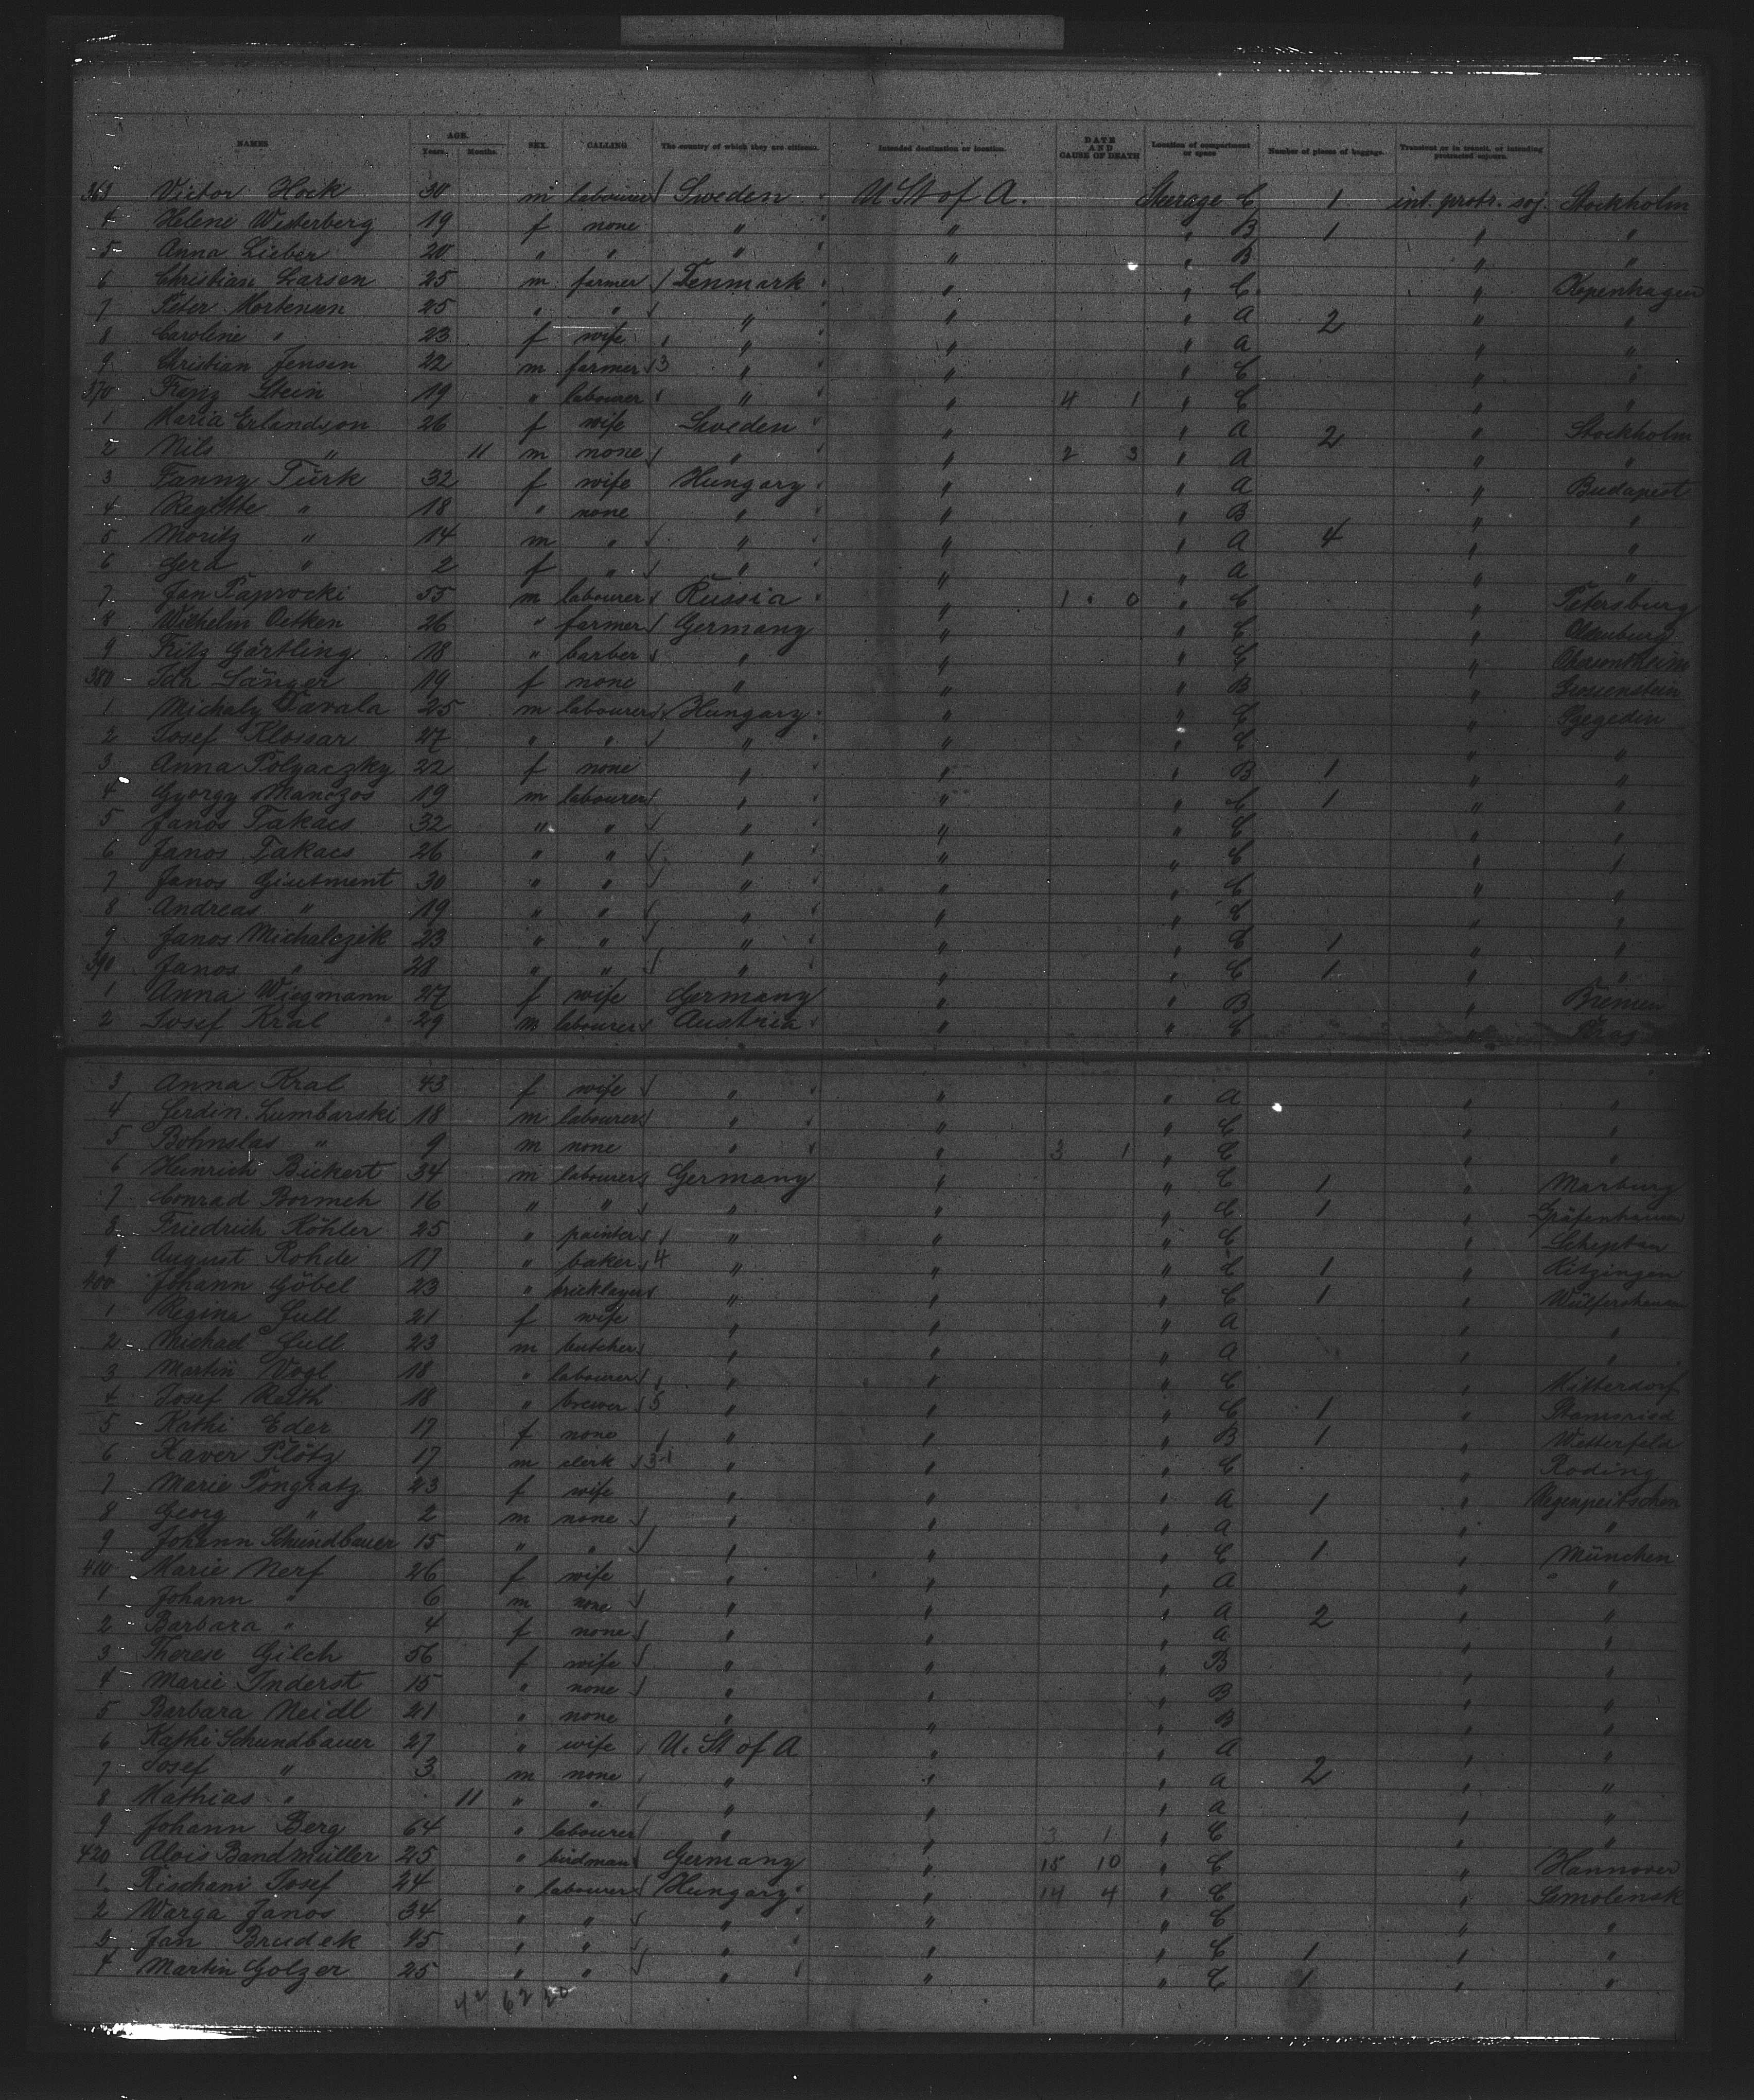 NAMES AGE. Years. Months. SEX. CALLING The country of which they are citizens. Intended destination or location. DATE AND CAUSE OF DEATH Location of compartment or space Number of pieces of baggage. Transient as in transit, or intending protracted sojourn.
363 Victor Hock 30 m labourer Sweden U St of A. Steerage C 1 int. protr. soj. Stockholm
4 Helene Westerberg 19 f none " " " B 1 " "
5 Anna Lieber 20 " " " " " B " "
6 Christian Larsen 25 m farmer Denmark " " C " Kopenhagen
7 Peter Mortensen 25 " " " " " A 2 " "
8 Caroline " 23 f wife " " " A " "
9 Christian Jensen 22 m farmer 3 " " " C " "
370 Franz Stein 19 " labourer " " 4 1 " C " "
1 Maria Erlandson 26 f wife Sweden " " A 2 " Stockholm
2 Nils " 11 m none " " 2 3 " A " "
3 Fanny Türk 32 f wife Hungary " " A " Budapest
4 Regitte " 18 " none " " " B " "
5 Moritz " 14 m " " " " A 4 " "
6 Gera " 2 f " " " " A " "
7 Jan Paprocki 55 m labourer Russia " 1 0 " C " Petersburg
8 Wilhelm Oetken 26 " farmer Germany " " C " Oldenburg
9 Fritz Gärtling 18 " barber " " " C " Obersontheim
380 Ida Sänger 19 f none " " " B "
1 Michaly Davala 25 m labourer Hungary " " C " Szegedin
2 Josef Klossar 27 " " " " " C " "
3 Anna Polyaczky 22 f none " " " B 1 " "
4 György Manczos 19 m labourer " " " C 1 " "
5 Janos Takacs 32 " " " " " C " "
6 Janos Takacs 26 " " " " " C " "
7 Janos Giutment 30 " " " " " C " "
8 Andreas " 19 " " " " " C " "
9 Janos Michalczik 23 " " " " " C 1 " "
390 Janos " 28 " " " " " C 1 " "
1 Anna Wiegmann 27 f wife Germany " " B " Bremen
2 Josef Kral 29 m labourer Austria " " C " Prag
3 Anna Kral 43 f wife " " " A " "
4 Ferdin. Lumbarski 18 m labourer " " " C " "
5 Bohnslas " 9 m none " " 3 1 " C " "
6 Heinrich Bickert 34 m labourer Germany " " C 1 " Marburg
7 Conrad Bormeh 16 " " " " " C 1 " Gräfenhausen
8 Friedrich Köhler 25 " painter " " " C "
9 August Rohde 17 " baker 4 " " " C 1 " Kitzingen
400 Johann Göbel 23 " bricklayer " " " C 1 " Wülfershausen
1 Regina Gull 21 f wife " " " A " "
2 Michael Gull 23 m butcher " " " A " "
3 Martin Vogl 18 " labourer " " " C " Mitterdorf
4 Josef Reith 18 " brewer 5 " " " C 1 " Stamsried
5 Kathi Eder 17 f none " " " B 1 " Wetterfeld
6 Xaver Plötz 17 m clerk 3-1 " " " C " Roding
7 Marie Pongratz 23 f wife " " " A 1 "
8 Georg " 2 m none " " " A " "
9 Johann Schundbauer 15 " " " " " C 1 " München
410 Marie Nerf 26 f wife " " " A " "
1 Johann " 6 m none " " " A 2 " "
2 Barbara " 4 f none " " " A " "
3 Therese Gilch 56 f wife " " " B " "
4 Marie Inderst 15 " none " " " B " "
5 Barbara Neidl 21 " none " " " B " "
6 Kathi Schundbauer 27 " wife U. St of A " " A " "
7 Josef " 3 m none " " " A 2 " "
8 Mathias " 11 " " " " " A " "
9 Johann Berg 64 " labourer " " 3 1 " C " "
420 Alois Bandmüller 25 " birdman Germany " 15 10 " C " Hannover
1 Rischani Josef 24 " labourer Hungary " 14 4 " C " Semolensk
2 Warga Janos 34 " " " " " C " "
3 Jan Brudek 45 " " " " " C 1 " "
4 Martin Golzer 25 " " " " " C 1 " "
42 62 20